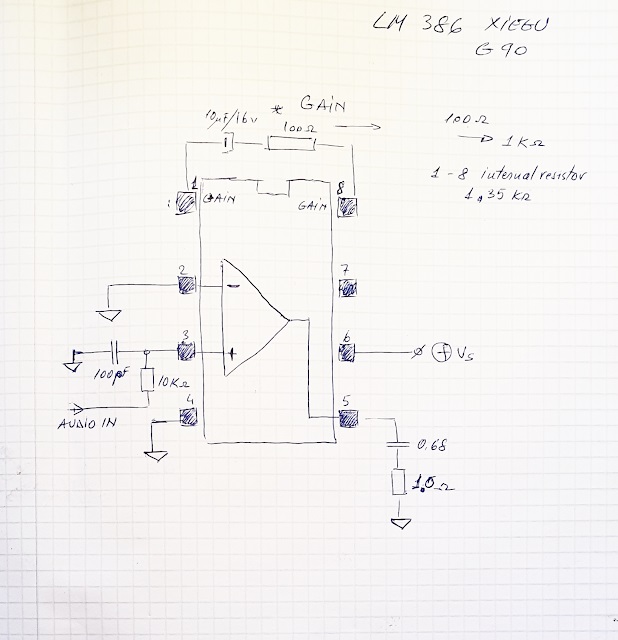 LM 386 XIEGU
G90
* GAIN
10µF/16V
100Ω
100Ω
→ 1KΩ
1 - 8 internal resistor
1,35 KΩ
1
8
GAIN
GAIN
2
7
-
3
6
+
+ Vs
100pF
10KΩ
4
5
AUDIO IN
0.68
1.0Ω